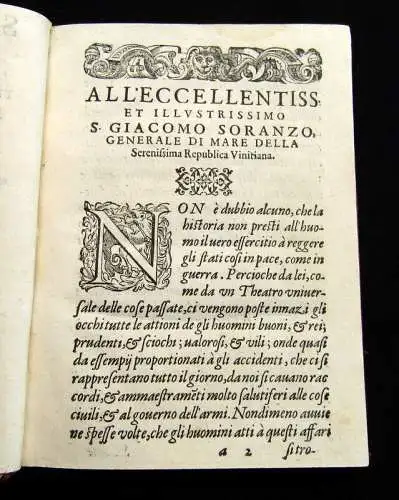 ALL'ECCELLENTISS.
ET ILLVSTRISSIMO
S. GIACOMO SORANZO,
GENERALE DI MARE DELLA
Sereniſſima Republica Vinitiana.
NON è dubbio alcuno, che la
hiſtoria non preſti all'huo
mo il uero eſſercitio à reggere
gli ſtati coſi in pace, come in
guerra. Percioche da lei, co-
me da vn Theatro vniuer-
ſale delle coſe paſſate, ci vengono poſte innāzi gli
occhi tutte le attioni de gli huomini buoni, & rei;
prudenti, & ſciochi; ualoroſi, & vili; onde quaſi
da eſſempij proportionati à gli accidenti, che ci ſi
rappreſentano tutto il giorno, da noi ſi cauano rac
cordi, & ammaeſtramēti molto ſalutiferi alle coſe
ciuili, & al gouerno dell'armi. Nondimeno auuie
ne ſpeſſe volte, che gli huomini atti à queſti affari
a 2 ſi tro-